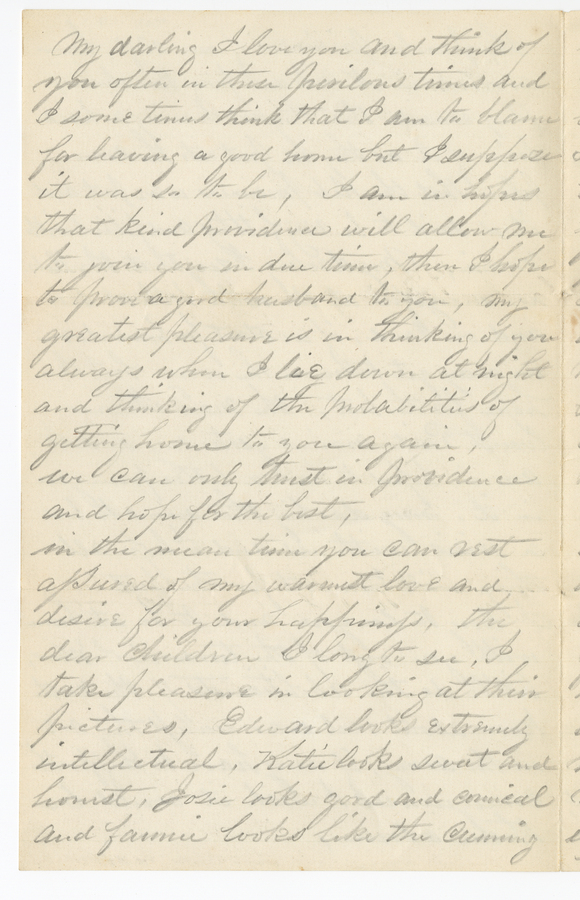 My darling I love you and think of
you often in these perilous times and
I some times think that I am to blame
for leaving a good home but I suppose
it was so to be, I am in hopes
that kind providence will allow me
to join you in due time, then I hope
to prove a good husband to you, my
greatest pleasure is in thinking of you
always when I lie down at night
and thinking of the probabilities of
getting home to you again,
we can only trust in providence
and hope for the best,
in the mean time you can rest
assured of my warmest love and
desire for your happiness, the
dear children I long to see, I
take pleasure in looking at their
pictures, Edward looks extremely
intellectual, Katie looks sweat and
honest, Josie looks good and comical
and fannie looks like the cunning